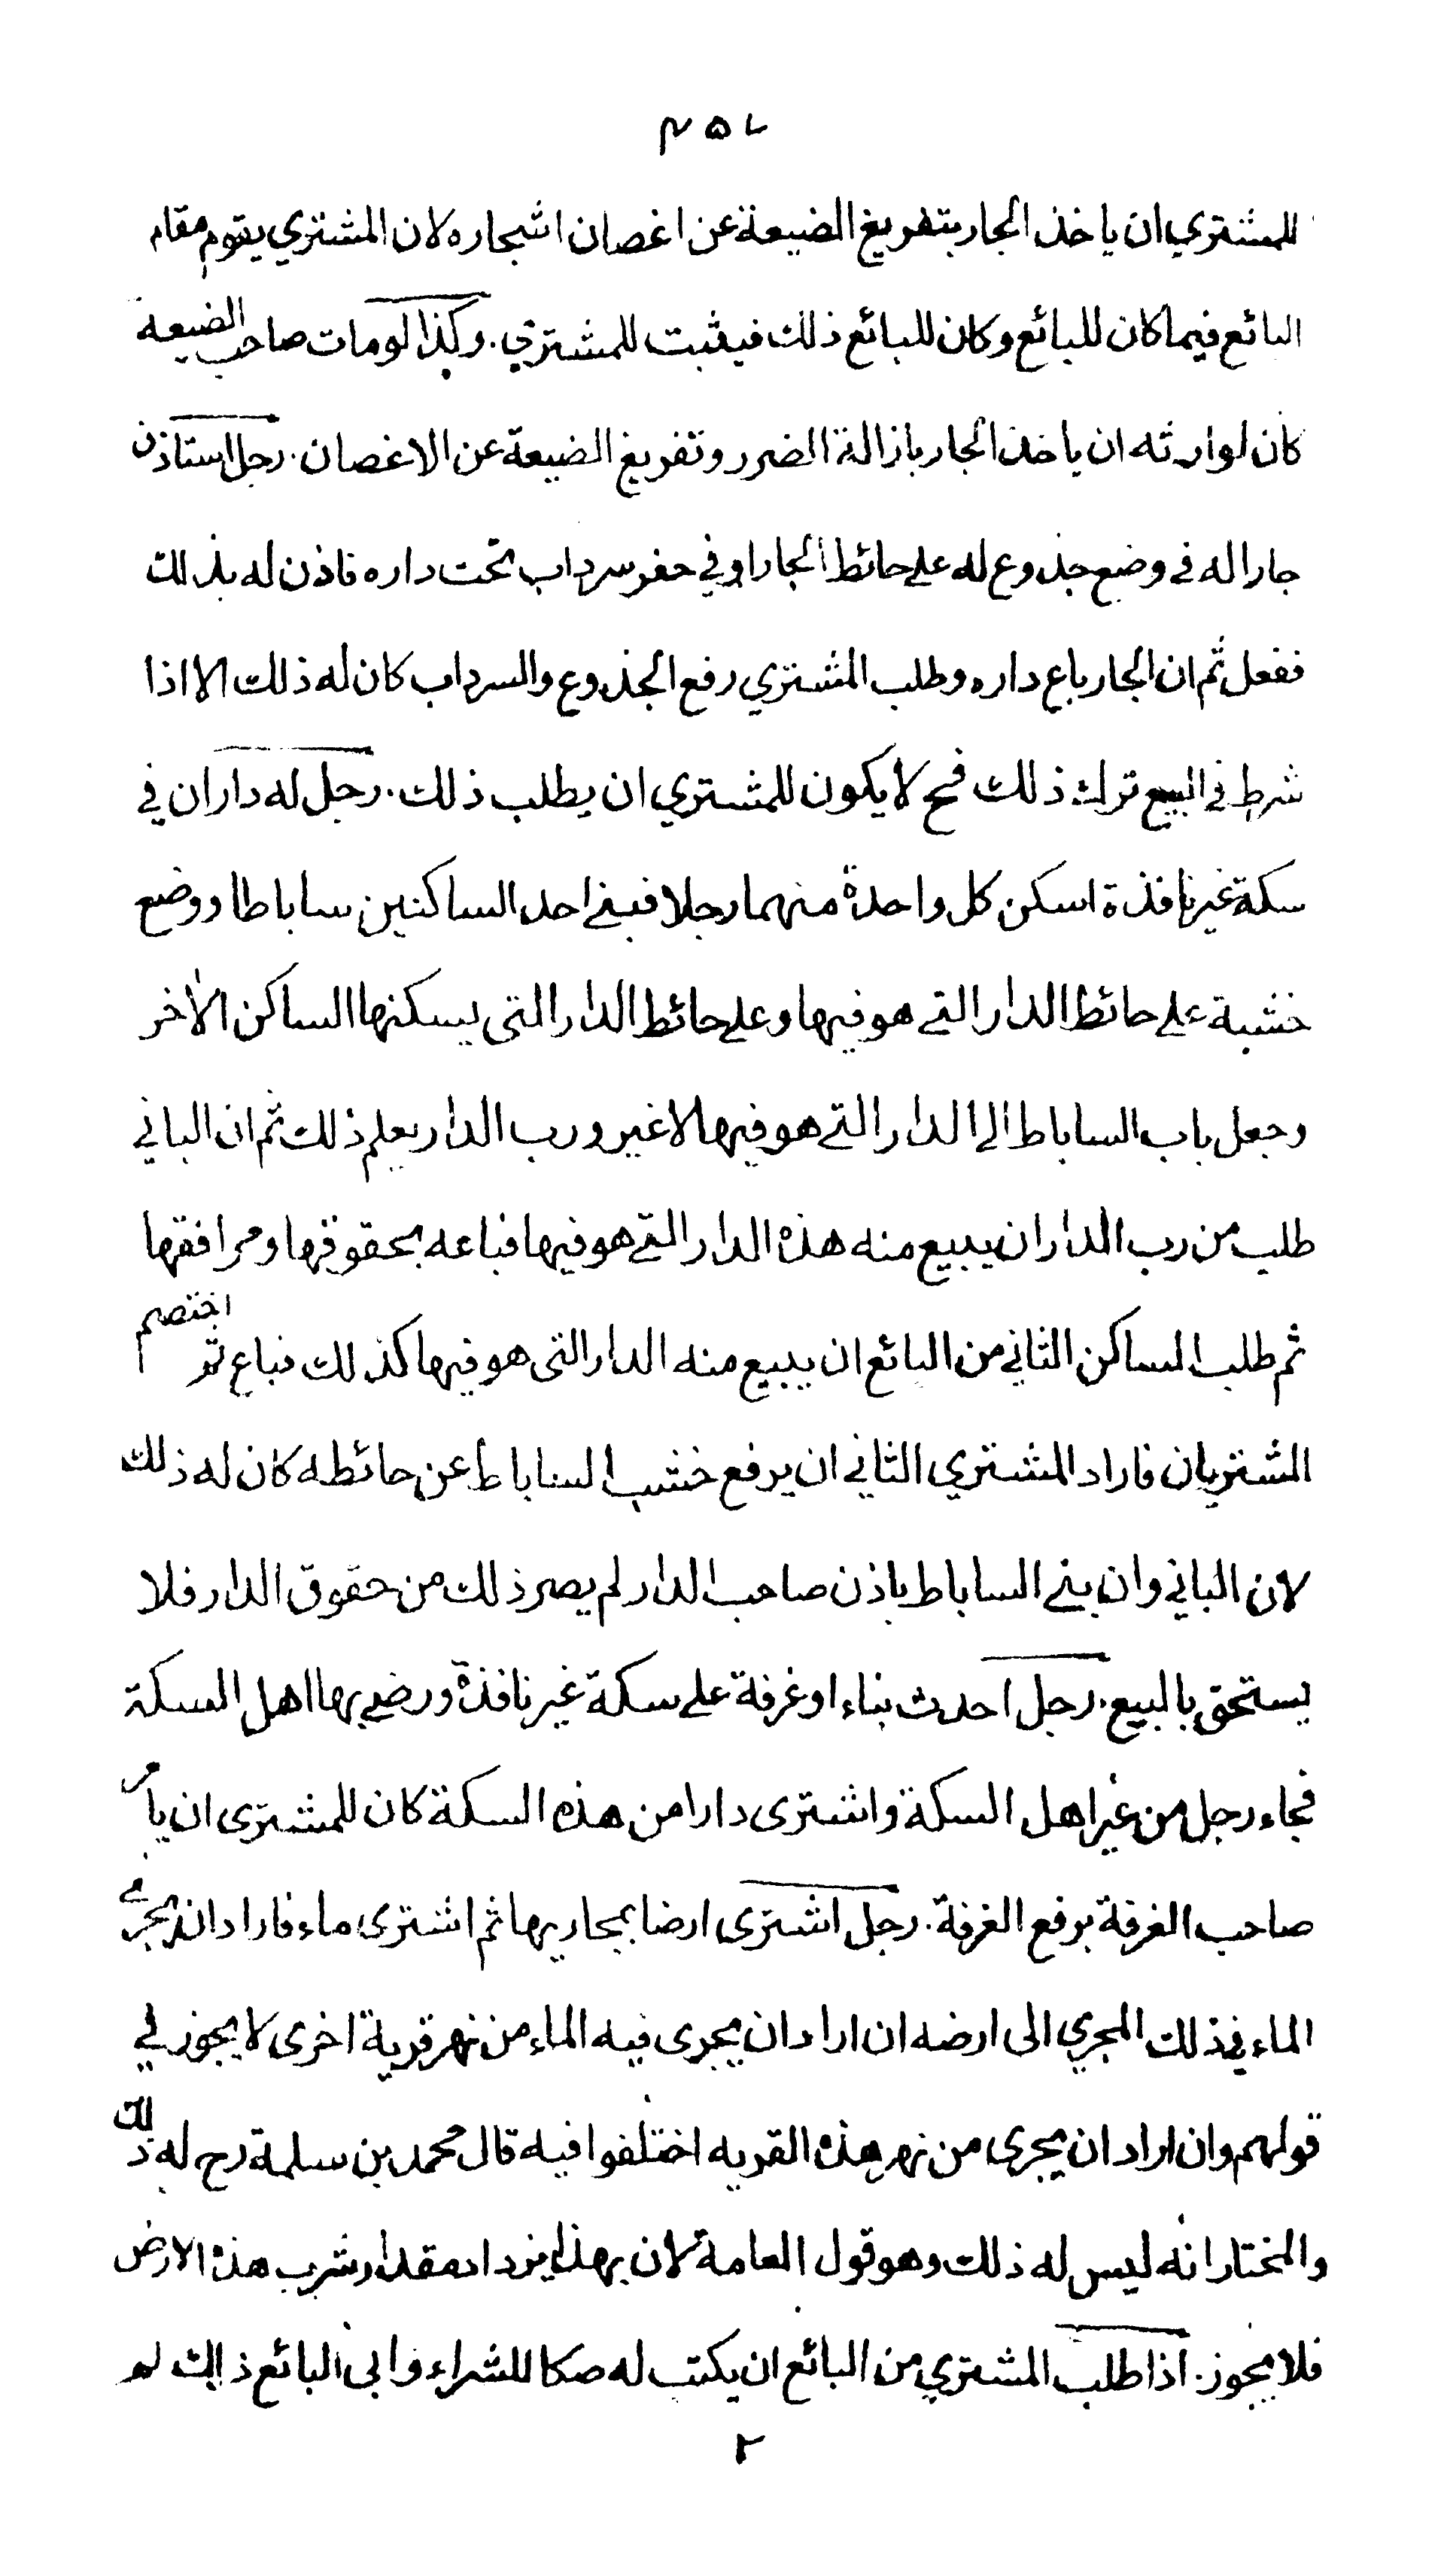 ٤٥٢
للمشتري ان ياخذ الجار بتفريغ الضيعة عن اغصان اشجاره لان المشتري يقوم مقام
البائع فيما كان للبائع وكان للبائع ذلك فيثبت للمشتري. وكذا لو مات صاحب الضيعة
كان لوارثه ان ياخذ الجار بازالة الضرر وتفريغ الضيعة عن الاغصان. رجل استاذن
جارا له في وضع جذوع له على حائط الجار او في حفر سرداب تحت داره فاذن له بذلك
ففعل ثم ان الجار باع داره وطلب المشتري رفع الجذوع والسرداب كان له ذلك الا اذا
شرط في البيع ترك ذلك فح لا يكون للمشتري ان يطلب ذلك. رجل له داران في
سكة غير نافذة اسكن كل واحدة منهما رجلا فبنى احد الساكنين ساباطا ووضع
خشبة على حائط الدار التي هو فيها وعلى حائط الدار التى يسكنها الساكن الاخر
وجعل باب الساباط الى الدار التي هو فيها لا غير ورب الدار يعلم ذلك ثم ان الباني
طلب من رب الدار ان يبيع منه هذه الدار التي هو فيها فباعه بحقوقها ومرافقها
ثم طلب الساكن الثاني من البائع ان يبيع منه الدار التى هو فيها كذلك فباع ثم اختصم
المشتريان فاراد المشتري الثاني ان يرفع خشب الساباط عن حائطه كان له ذلك
لان الباني وان بنى الساباط باذن صاحب الدار لم يصر ذلك من حقوق الدار فلا
يستحق بالبيع. رجل احدث بناء او غرفة على سكة غير نافذة ورضي بها اهل السكة
فجاء رجل من غير اهل السكة واشترى دارا من هذه السكة كان للمشترى ان يأمر
صاحب الغرفة برفع الغرفة. رجل اشترى ارضا بمجاريها ثم اشترى ماء فاراد ان يجري
الماء في ذلك المجري الى ارضه ان اراد ان يجرى فيه الماء من نهر قرية اخرى لا يجوز في
قولهم وان اراد ان يجرى من نهر هذه القريه اختلفوا فيه قال محمد بن سلمة رح له ذلك
والمختار انه ليس له ذلك وهو قول العامة لان بهذا يزداد مقدار شرب هذه الارض
فلا يجوز. اذا طلب المشتري من البائع ان يكتب له صكا للشراء وابى البائع ذلك لم
٢